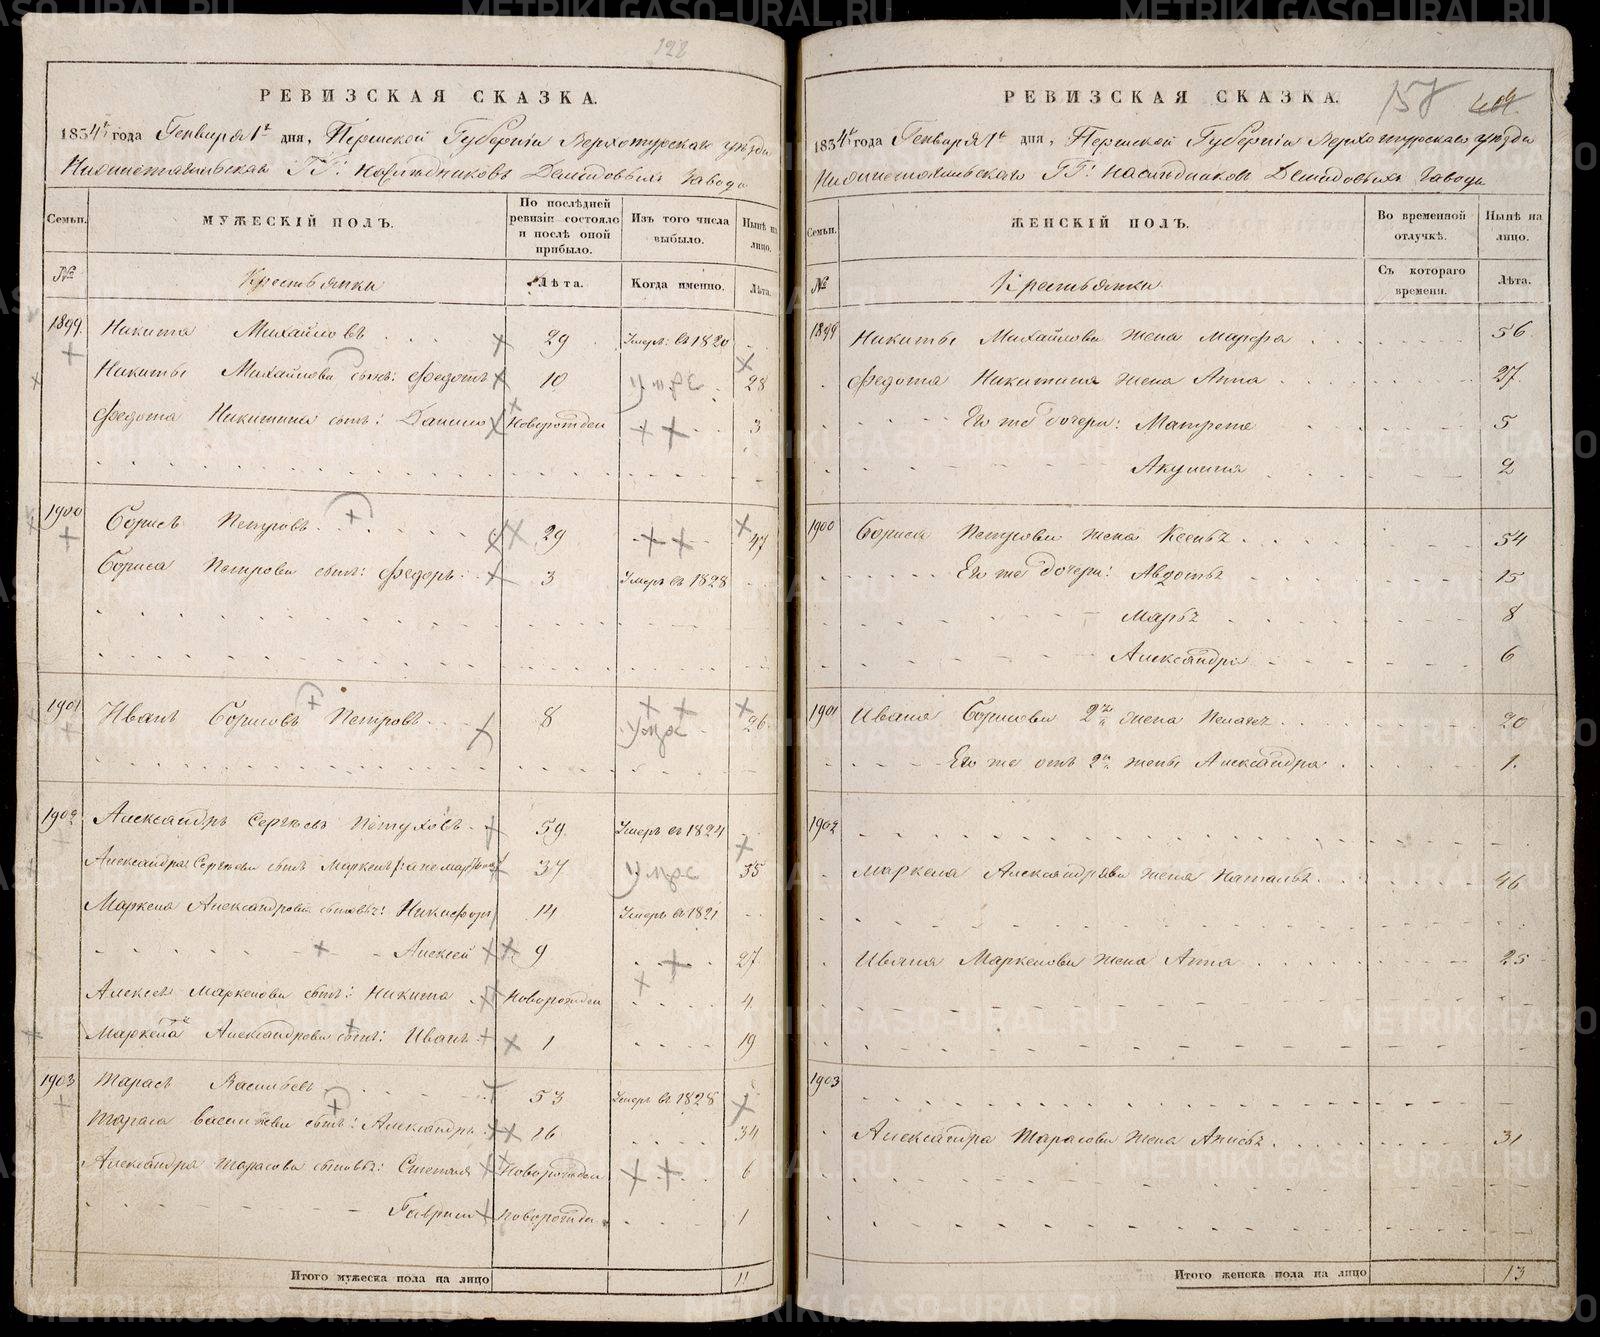 122
РЕВИЗСКАЯ СКАЗКА.
1834 года Генваря 1 дня, Пермской Губерніи Верхотурскаго уѣзда
ГГ: Наслѣдниковъ Демидовыхъ завода
Семьи.
МУЖЕСКІЙ ПОЛЪ.
По послѣдней ревизіи состояло и послѣ оной прибыло.
Изъ того числа выбыло.
Нынѣ на лицо.
№
Крестьянки
Лѣта.
Когда именно.
Лѣта.
1899 Никита Михайловъ 29 Умеръ въ 1820
Никиты Михайлова сынъ: Федотъ 10 28
Федота Никитина сынъ: Данило Новорожден 3
1900 Борисъ Петровъ 29 47
Бориса Петрова сынъ: Федоръ 3 Умеръ въ 1828
1901 Иванъ Борисовъ Петровъ 8 26
1902 Александръ Сергѣевъ Пѣтуховъ 59 Умеръ въ 1824
Александра Сергѣева сынъ Маркелъ 37 35
Маркела Александрова сыновья: Никифоръ 14 Умеръ въ 1821
Алексѣй 9 27
Алексѣя Маркелова сынъ: Никита Новорожден 4
Маркела Александрова сынъ: Иванъ 1 19
1903 Тарасъ Васильевъ 53 Умеръ въ 1828
Тараса Васильева сынъ: Александръ 16 34
Александра Тарасова сыновья: Степанъ Новорожден 6
Гаврило Новорожден 1
Итого мужеска пола на лицо 11
157
РЕВИЗСКАЯ СКАЗКА.
1834 года Генваря 1 дня, Пермской Губерніи Верхотурскаго уѣзда
ГГ: Наслѣдниковъ Демидовыхъ завода
Семьи.
ЖЕНСКІЙ ПОЛЪ.
Во временной отлучкѣ.
Нынѣ на лицо.
№
Крестьянки
Съ котораго времени.
Лѣта.
1899 Никиты Михайлова жена Марфа 56
Федота Никитина жена Анна 27
Его же дочери: Матрена 5
Акулина 2
1900 Бориса Петрова жена Ксенья 54
Его же дочери: Авдотья 15
Марья 8
Александра 6
1901 Ивана Борисова 2я жена Пелагея 20
Его же отъ 2й жены Александра 1
1902
Маркела Александрова жена Наталья 46
Ивана Маркелова жена Анна 25
1903
Александра Тарасова жена Анисья 31
Итого женска пола на лицо 13
METRIKI.GASO-URAL.RU